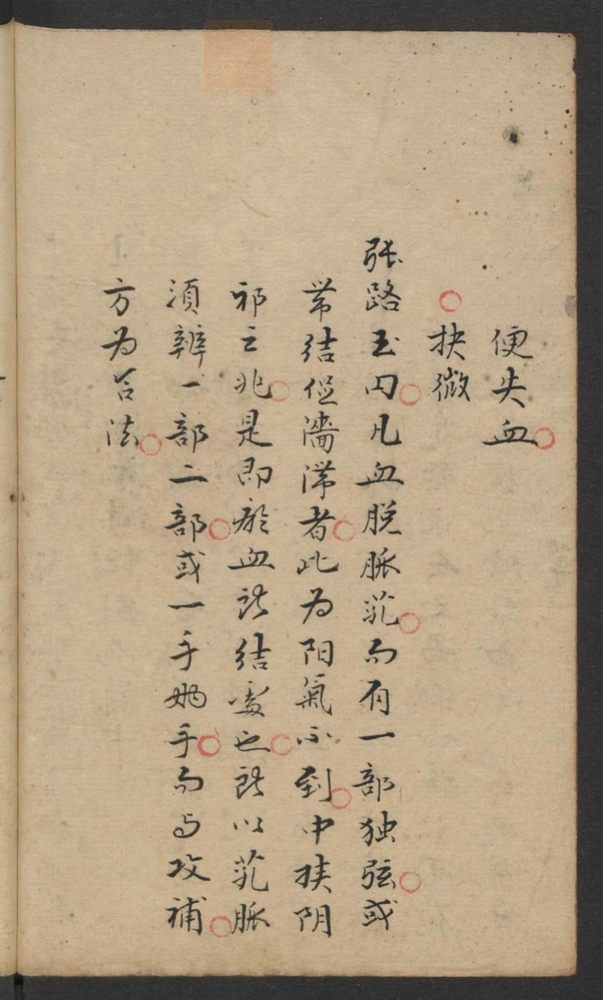 便失血
○抉微
张路玉曰凡血脱脈芤而有一部独弦或
带结促濇滞者此为阳氣不到中挟阴
邪之兆是即瘀血所结處也所以芤脈
須辨一部二部或一手两手而与攻補
方为合法